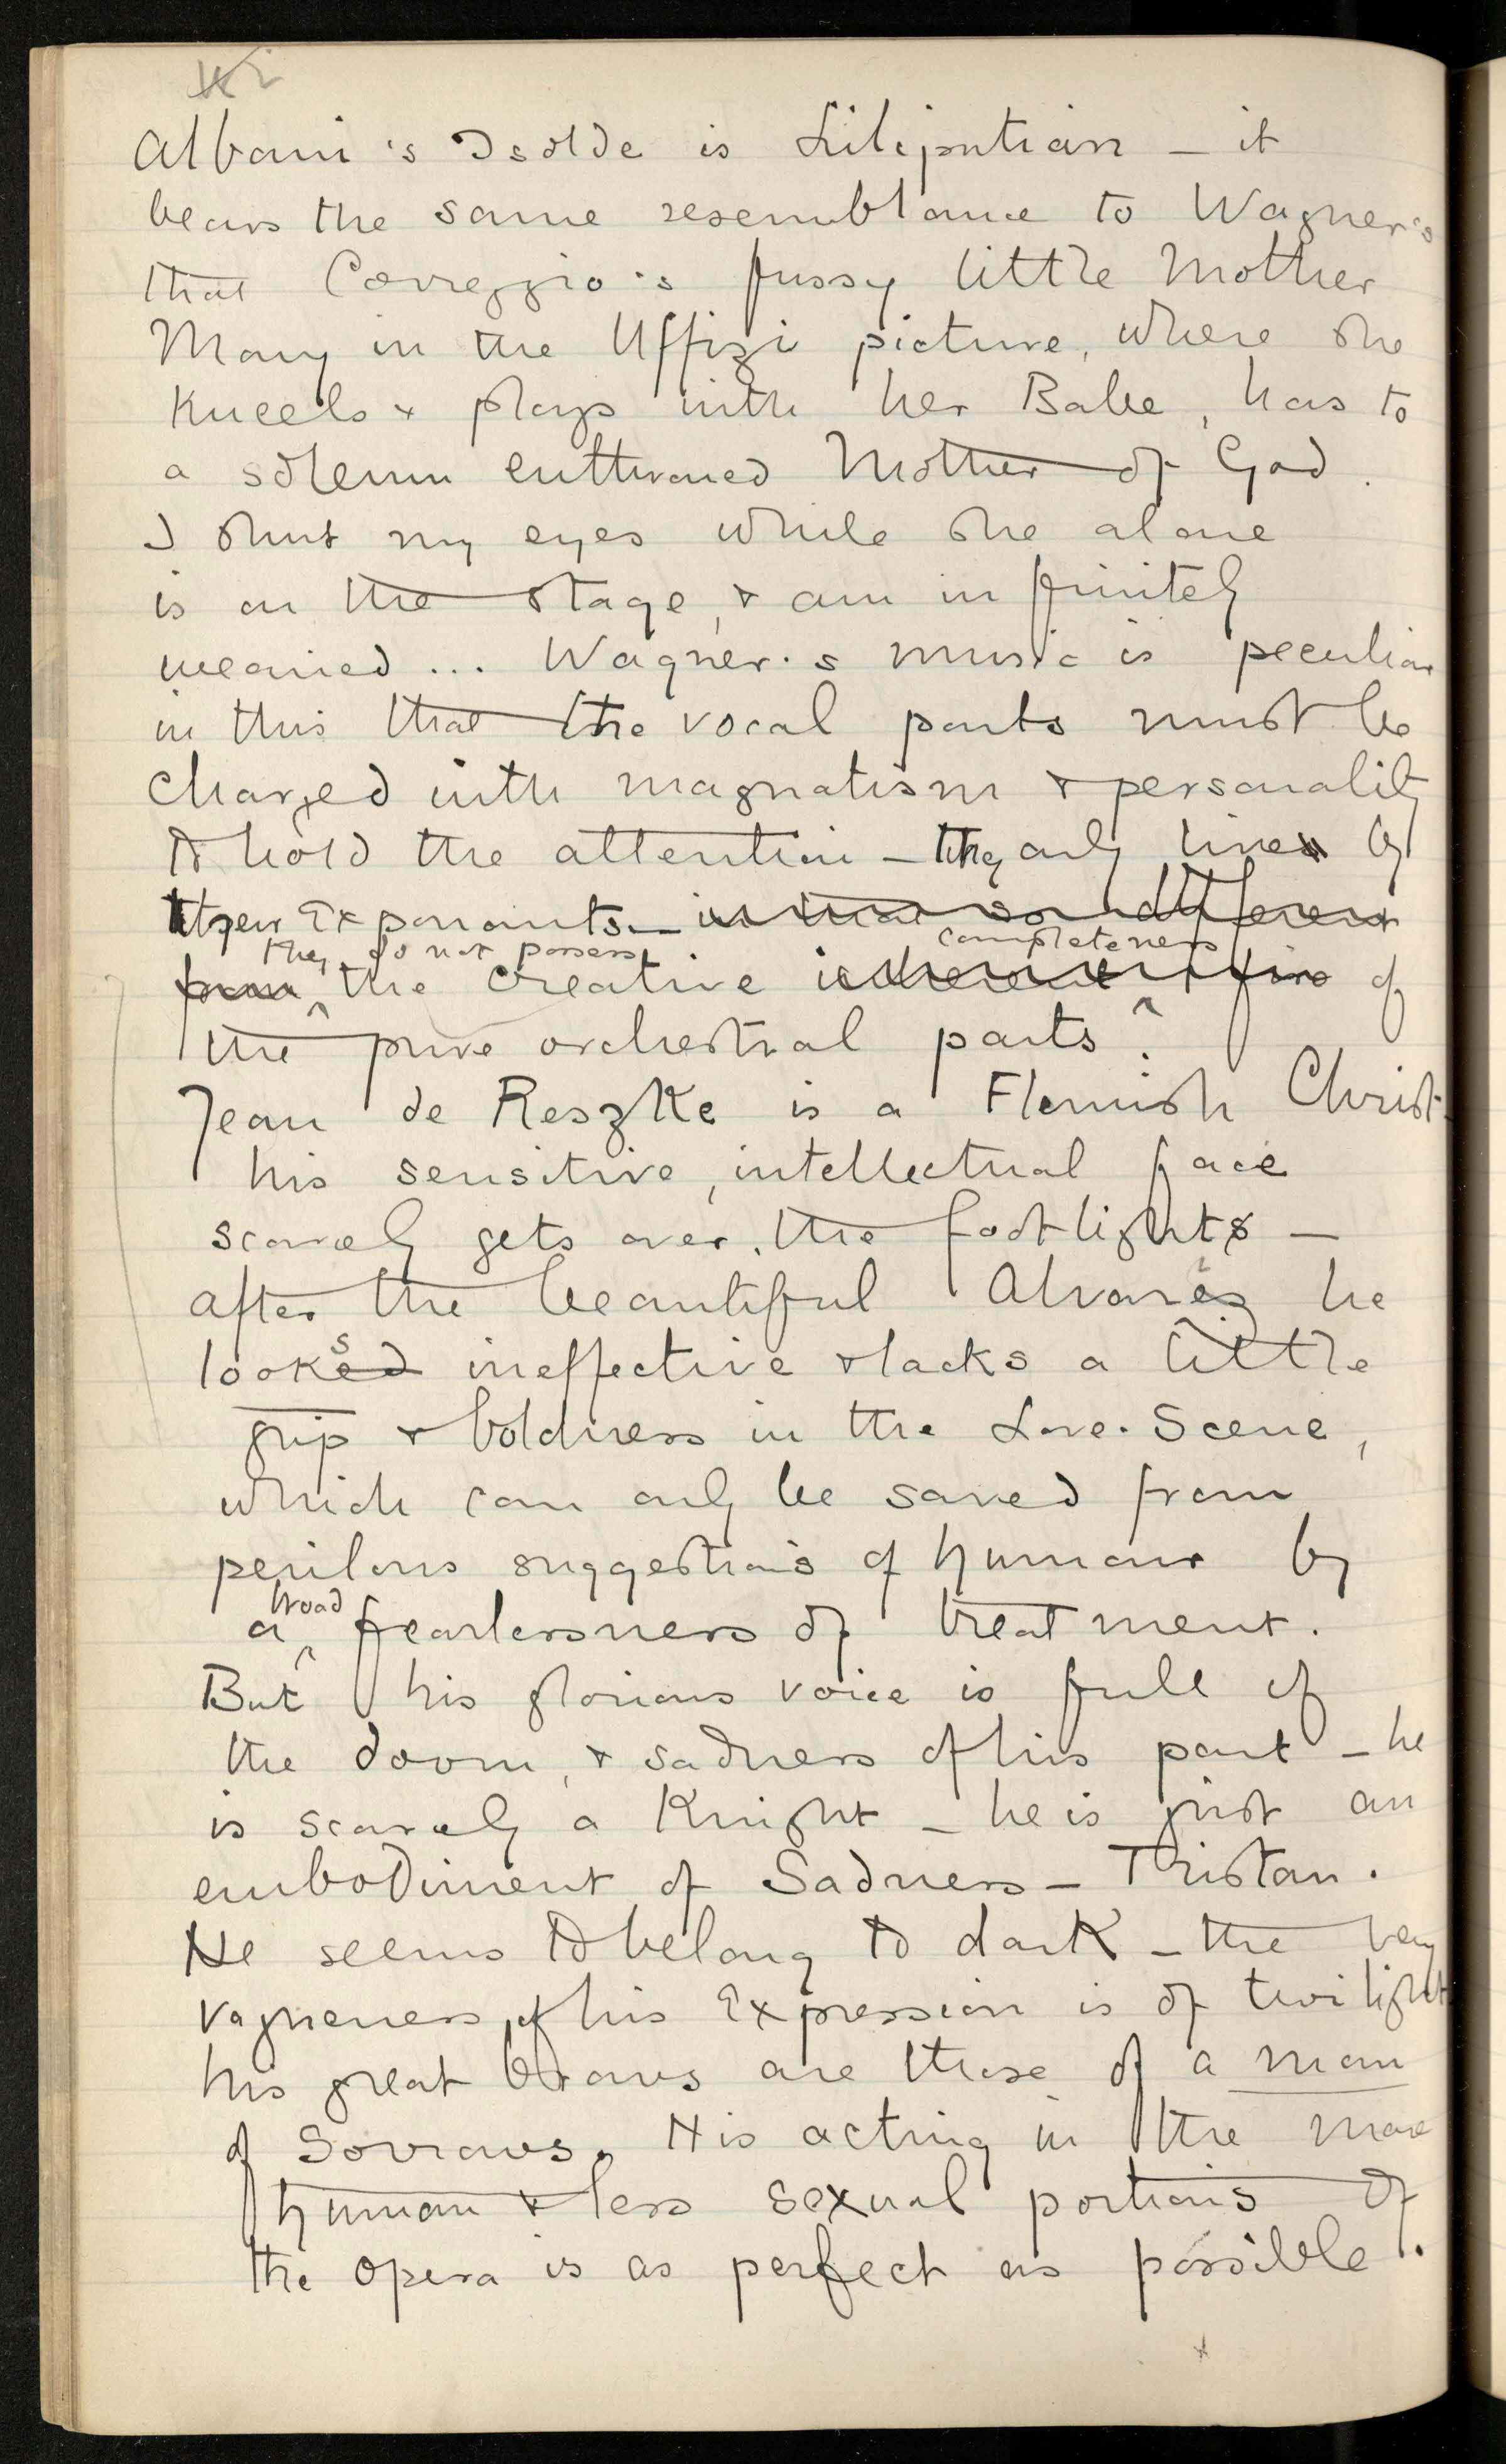 Albani's Isolde is Liliputian – it
bears the same resemblance to Wagner's
that Correggio's fussy little Mother
Mary in the Uffizi picture, where she
kneels & plays with her Babe, has to
a solemn enthroned Mother of God.
I shut my eyes while she alone
is on the stage, & am infinitely
wearied ... Wagner's music is peculiar
in this that the vocal parts must be
charged with magnatism & personality
to hold the attention – they only live by
their Exponants – in that so different
they do not possess completeness
from the creative inherent of
the pure orchestral parts.
Jean de Reszke is a Flemish Christ –
his sensitive, intellectual face
scarcely gets over the footlights –
after the beautiful Alvarès he
looks ineffective & lacks a little
grip & boldness in the Love-Scene,
which can only be saved from
perilous suggestions of humour by
a broad fearlessness of treatment.
But his glorious voice is full of
the doom, & sadness of his part – he
is scarcely a Knight – he is just an
embodiment of Sadness – Tristan.
He seems to belong to dark – the very
vagueness of his Expression is of twilight
his great brows are those of a man
of Sorrows. His acting in the more
human & less sexual portions of
the opera is as perfect as possible.